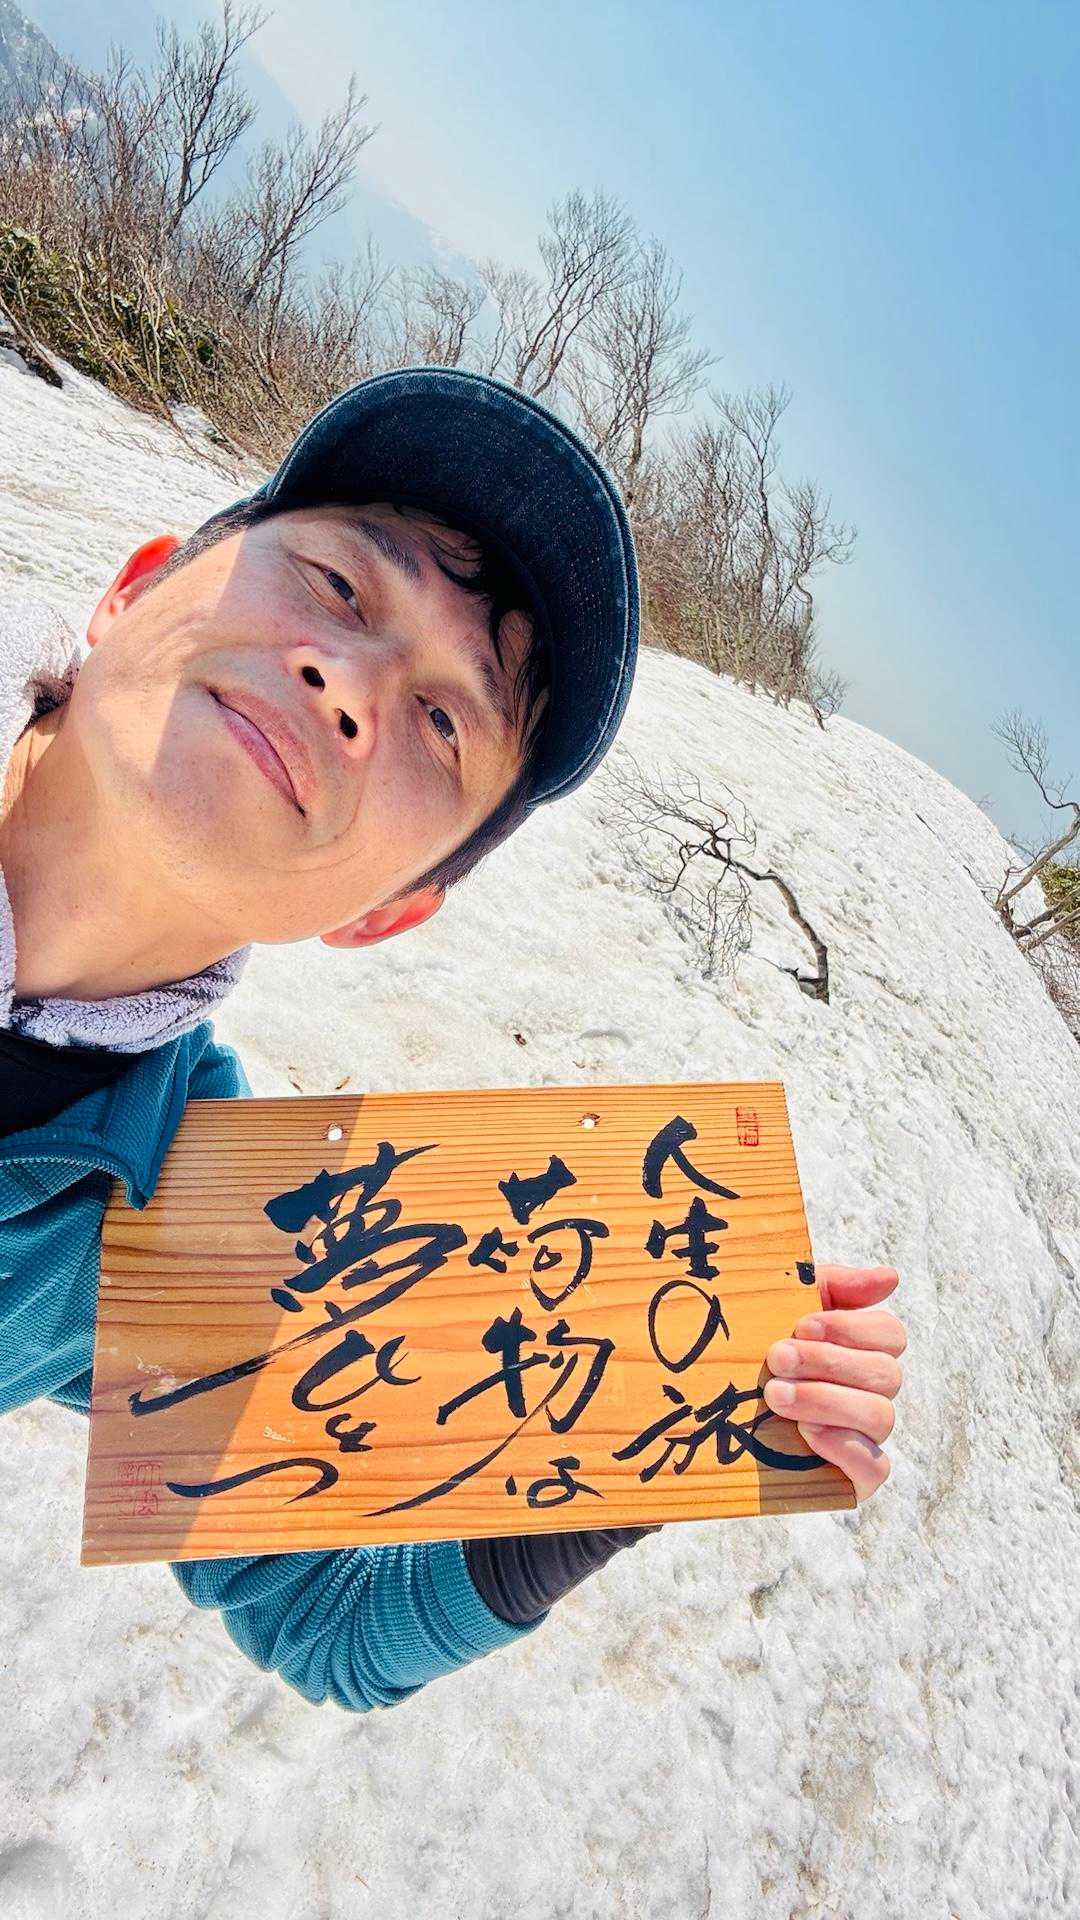 人生の旅
荷物は
夢ひとつ